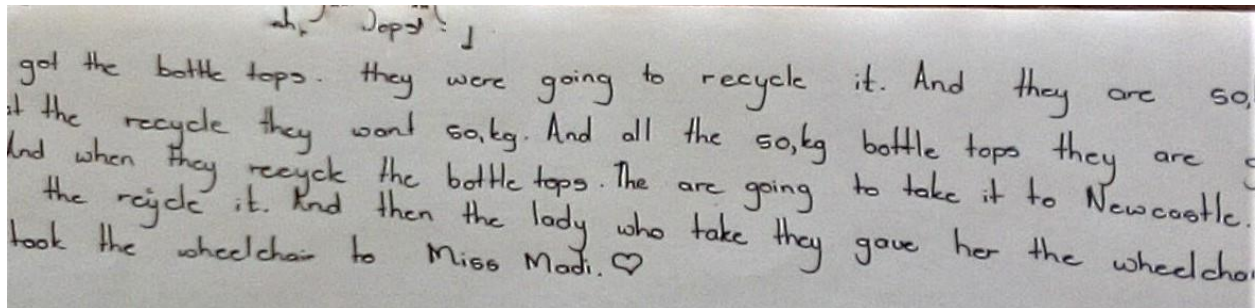 got the bottle tops. they were going to recycle it. And they are so,
the recycle they want so,kg. And all the so,kg bottle tops they are
And when they recyck the bottle tops. The are going to take it to Newcastle.
the reycle it. And then the lady who take they gave her the wheelchai
took the wheelchair to Miss Madi. ♡